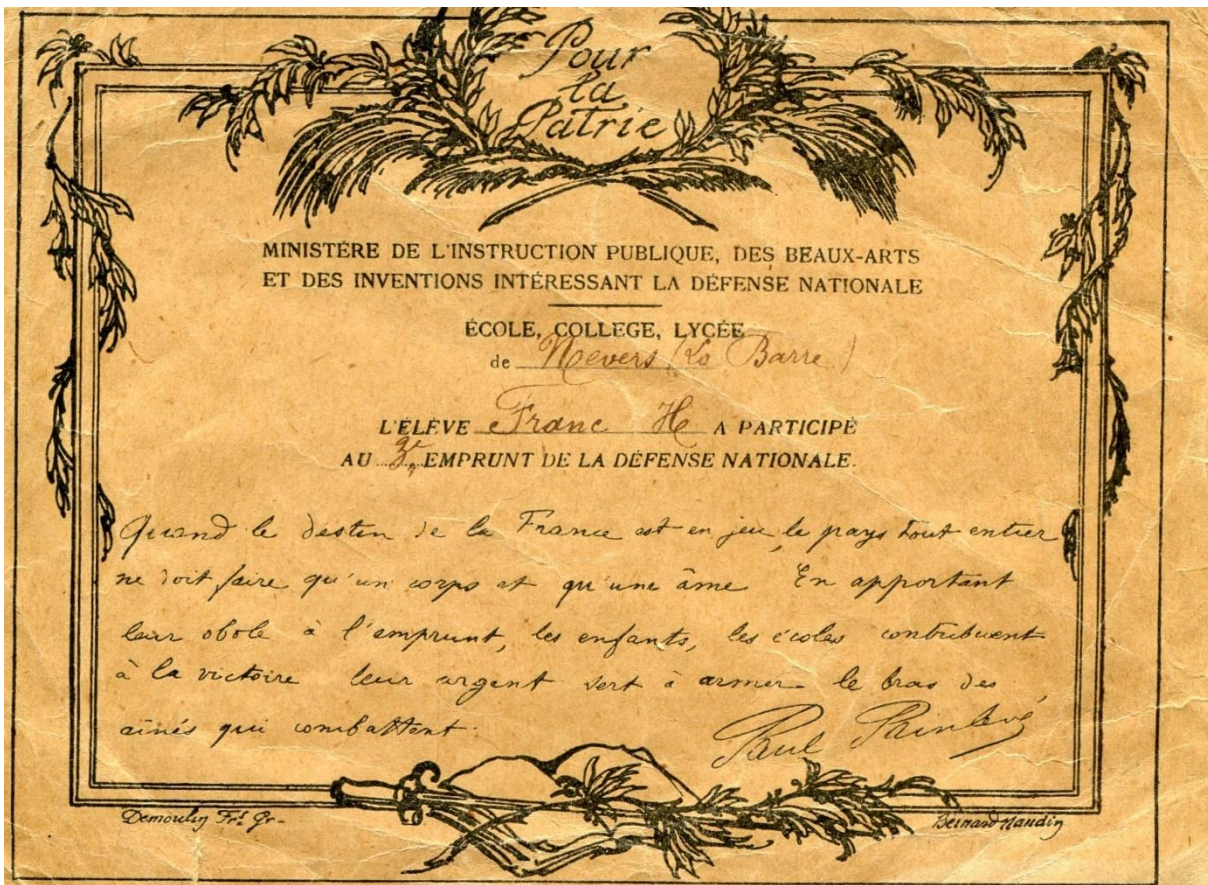 Pour
la
Patrie
MINISTÈRE DE L'INSTRUCTION PUBLIQUE, DES BEAUX-ARTS
ET DES INVENTIONS INTÉRESSANT LA DÉFENSE NATIONALE
ÉCOLE, COLLEGE, LYCÉE
de Nevers (La Barre)
L'ÉLÈVE Franc H A PARTICIPÉ
AU 3e EMPRUNT DE LA DÉFENSE NATIONALE.
Quand le destin de la France est en jeu, le pays tout entier
ne doit faire qu'un corps et qu'une âme En apportant
leur obole à l'emprunt, les enfants, les écoles contribuent
à la victoire leur argent sert à armer le bras des
aînés qui combattent.
Paul Painlevé
Demoulin Fres Gr-
Bernard Naudin